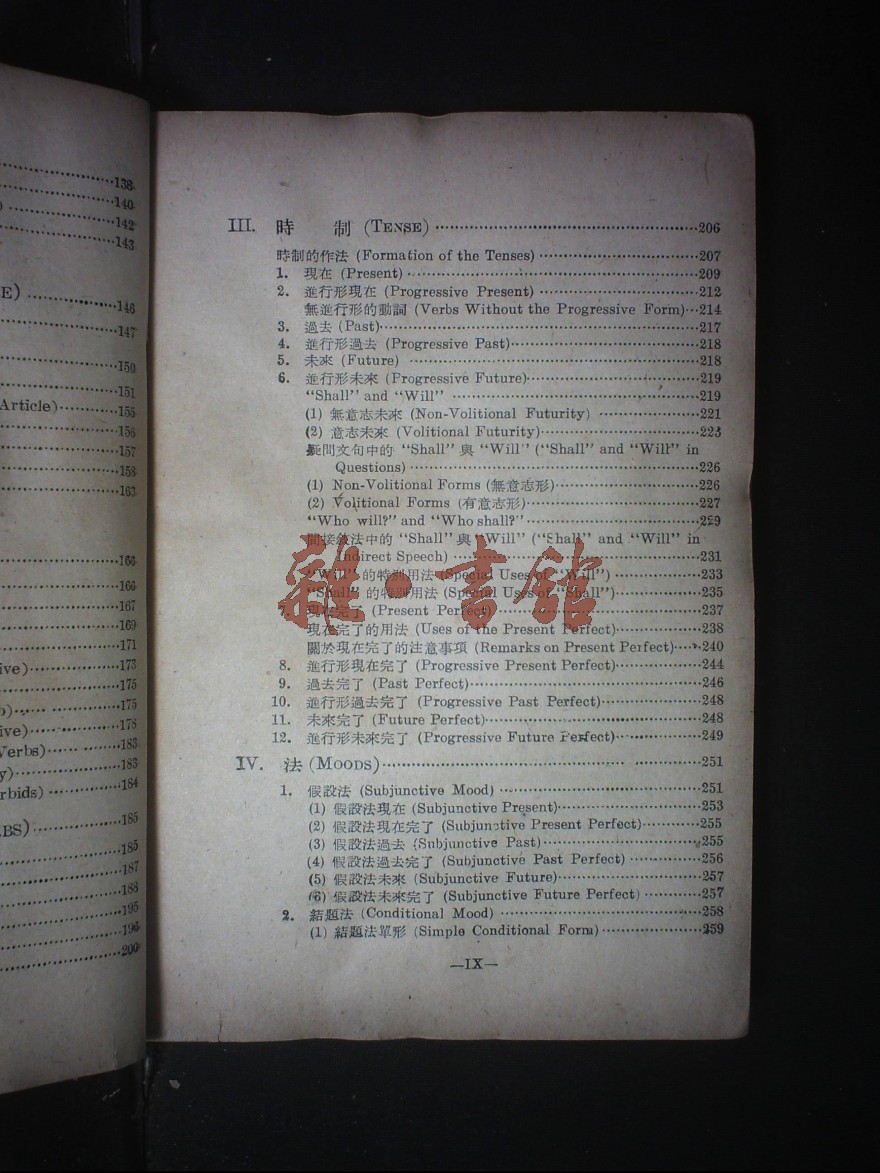 138
140
142
143
E)
146
147
150
151
Article)
155
156
157
158
163
166
166
167
169
171
ive) 173
175
175
ive) 178
Verbs) 183
y) 183
rbids) 184
BS) 185
185
187
188
195
196
200
III. 時 制 (TENSE) 206
時制的作法 (Formation of the Tenses) 207
1. 現在 (Present) 209
2. 進行形現在 (Progressive Present) 212
無進行形的動詞 (Verbs Without the Progressive Form) 214
3. 過去 (Past) 217
4. 進行形過去 (Progressive Past) 218
5. 未來 (Future) 218
6. 進行形未來 (Progressive Future) 219
“Shall” and “Will” 219
(1) 無意志未來 (Non-Volitional Futurity) 221
(2) 意志未來 (Volitional Futurity) 223
疑問文句中的 “Shall” 與 “Will” (“Shall” and “Will” in
Questions) 226
(1) Non-Volitional Forms (無意志形) 226
(2) Volitional Forms (有意志形) 227
“Who will?” and “Who shall?” 229
間接敘法中的 “Shall” 與 “Will” (“Shall” and “Will” in
Indirect Speech) 231
“Will” 的特別用法 (Special Uses of “Will”) 233
“Shall” 的特別用法 (Special Uses of “Shall”) 235
7. 現在完了 (Present Perfect) 237
現在完了的用法 (Uses of the Present Perfect) 238
關於現在完了的注意事項 (Remarks on Present Perfect) 240
8. 進行形現在完了 (Progressive Present Perfect) 244
9. 過去完了 (Past Perfect) 246
10. 進行形過去完了 (Progressive Past Perfect) 248
11. 未來完了 (Future Perfect) 248
12. 進行形未來完了 (Progressive Future Perfect) 249
IV. 法 (MOODS) 251
1. 假設法 (Subjunctive Mood) 251
(1) 假設法現在 (Subjunctive Present) 253
(2) 假設法現在完了 (Subjunctive Present Perfect) 255
(3) 假設法過去 (Subjunctive Past) 255
(4) 假設法過去完了 (Subjunctive Past Perfect) 256
(5) 假設法未來 (Subjunctive Future) 257
(6) 假設法未來完了 (Subjunctive Future Perfect) 257
2. 結題法 (Conditional Mood) 258
(1) 結題法單形 (Simple Conditional Form) 259
—IX—
雜·書館